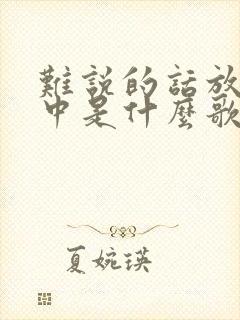 難說的話放
中是什麼歌
夏婉瑛